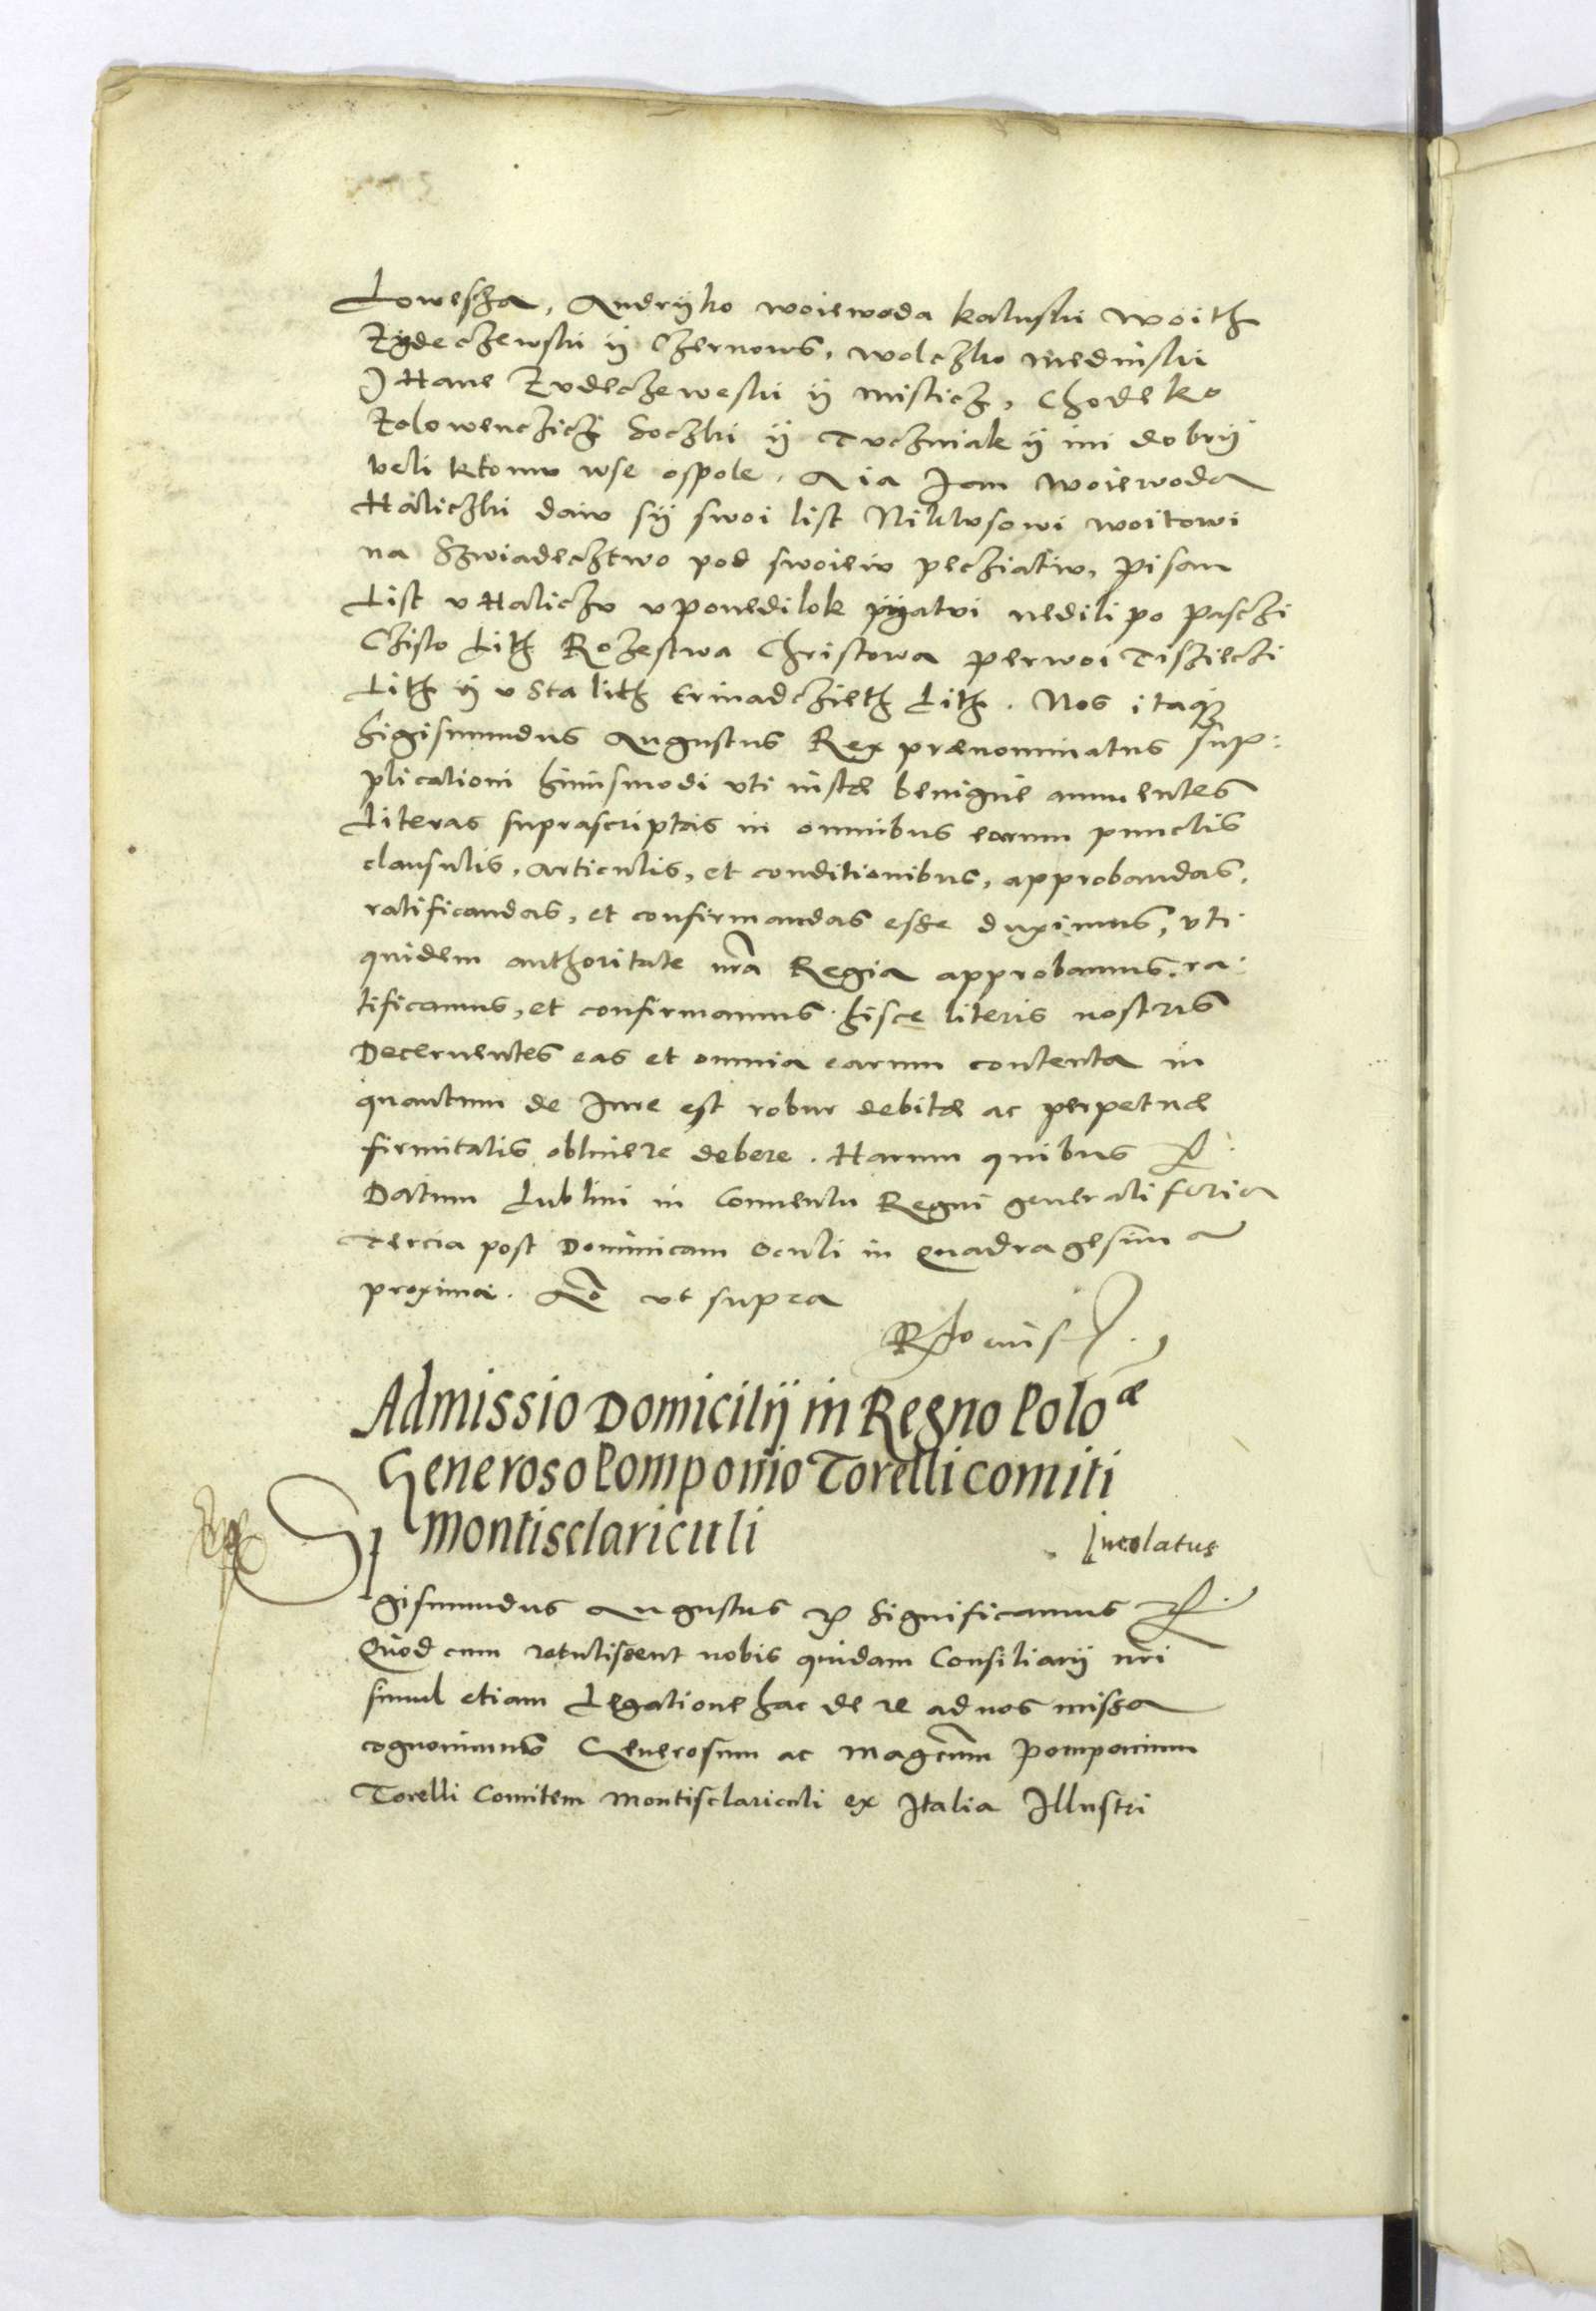 Lowescha, Andryko woiewoda kaluski woith
Zydeczewski ÿ Czernows, wolczko medinski
J Hane Zvdeczeweski ÿ misticz, Chodeko
Zolowenczicz Soczki ÿ Tvczniak ÿ ini dobrÿ
beli ktomv wse ospole. A ia Jam woiewoda
Haliczki daiv sÿ swoi list Niklvsowi woitowi
na Szwiadecztwo pod swoiew pecziativ, pisan
List v Haliczv v ponedilok pÿatoi nedili po paschi
Czislo Lith Rozestwa Christowa perwoi Tisieczi
Lith ÿ v Sta lith trinadczieth Lith. Nos itaq
Sigismundus Augustus Rex prænominatus sup:
plicationi huiusmodi vti iustæ benigne annuentes
Literas suprascriptas in omnibus earum punctis
clausulis, articulis, et conditionibus, approbandas,
ratificandas, et confirmandas esse duximus, vti
quidem authoritate nra Regia approbamus, ra:
tificamus, et confirmamus hisce literis nostris
Decernentes eas et omnia earum contenta in
quantum de Iure est robur debitæ ac perpetuæ
firmitatis obtinere debere. Harum quibus
Datum Lublini in Conuentu Regni generali feria
Tercia post Dominicam Oculi in Quadragesima
proxima. Ao ut supra
Admissio Domicilij in Regno Poloæ
Generoso Pomponio Torelli comiti
Montisclariculi Incolatus
Si
gismundus Augustus Significamus
Quod cum retulissent nobis quidam Consiliarij nri
simul etiam Legatione hac de re ad nos missa
cognouimus Generosum ac magcum Pomponium
Torelli Comitem Montisclariculi ex Italia Illustri